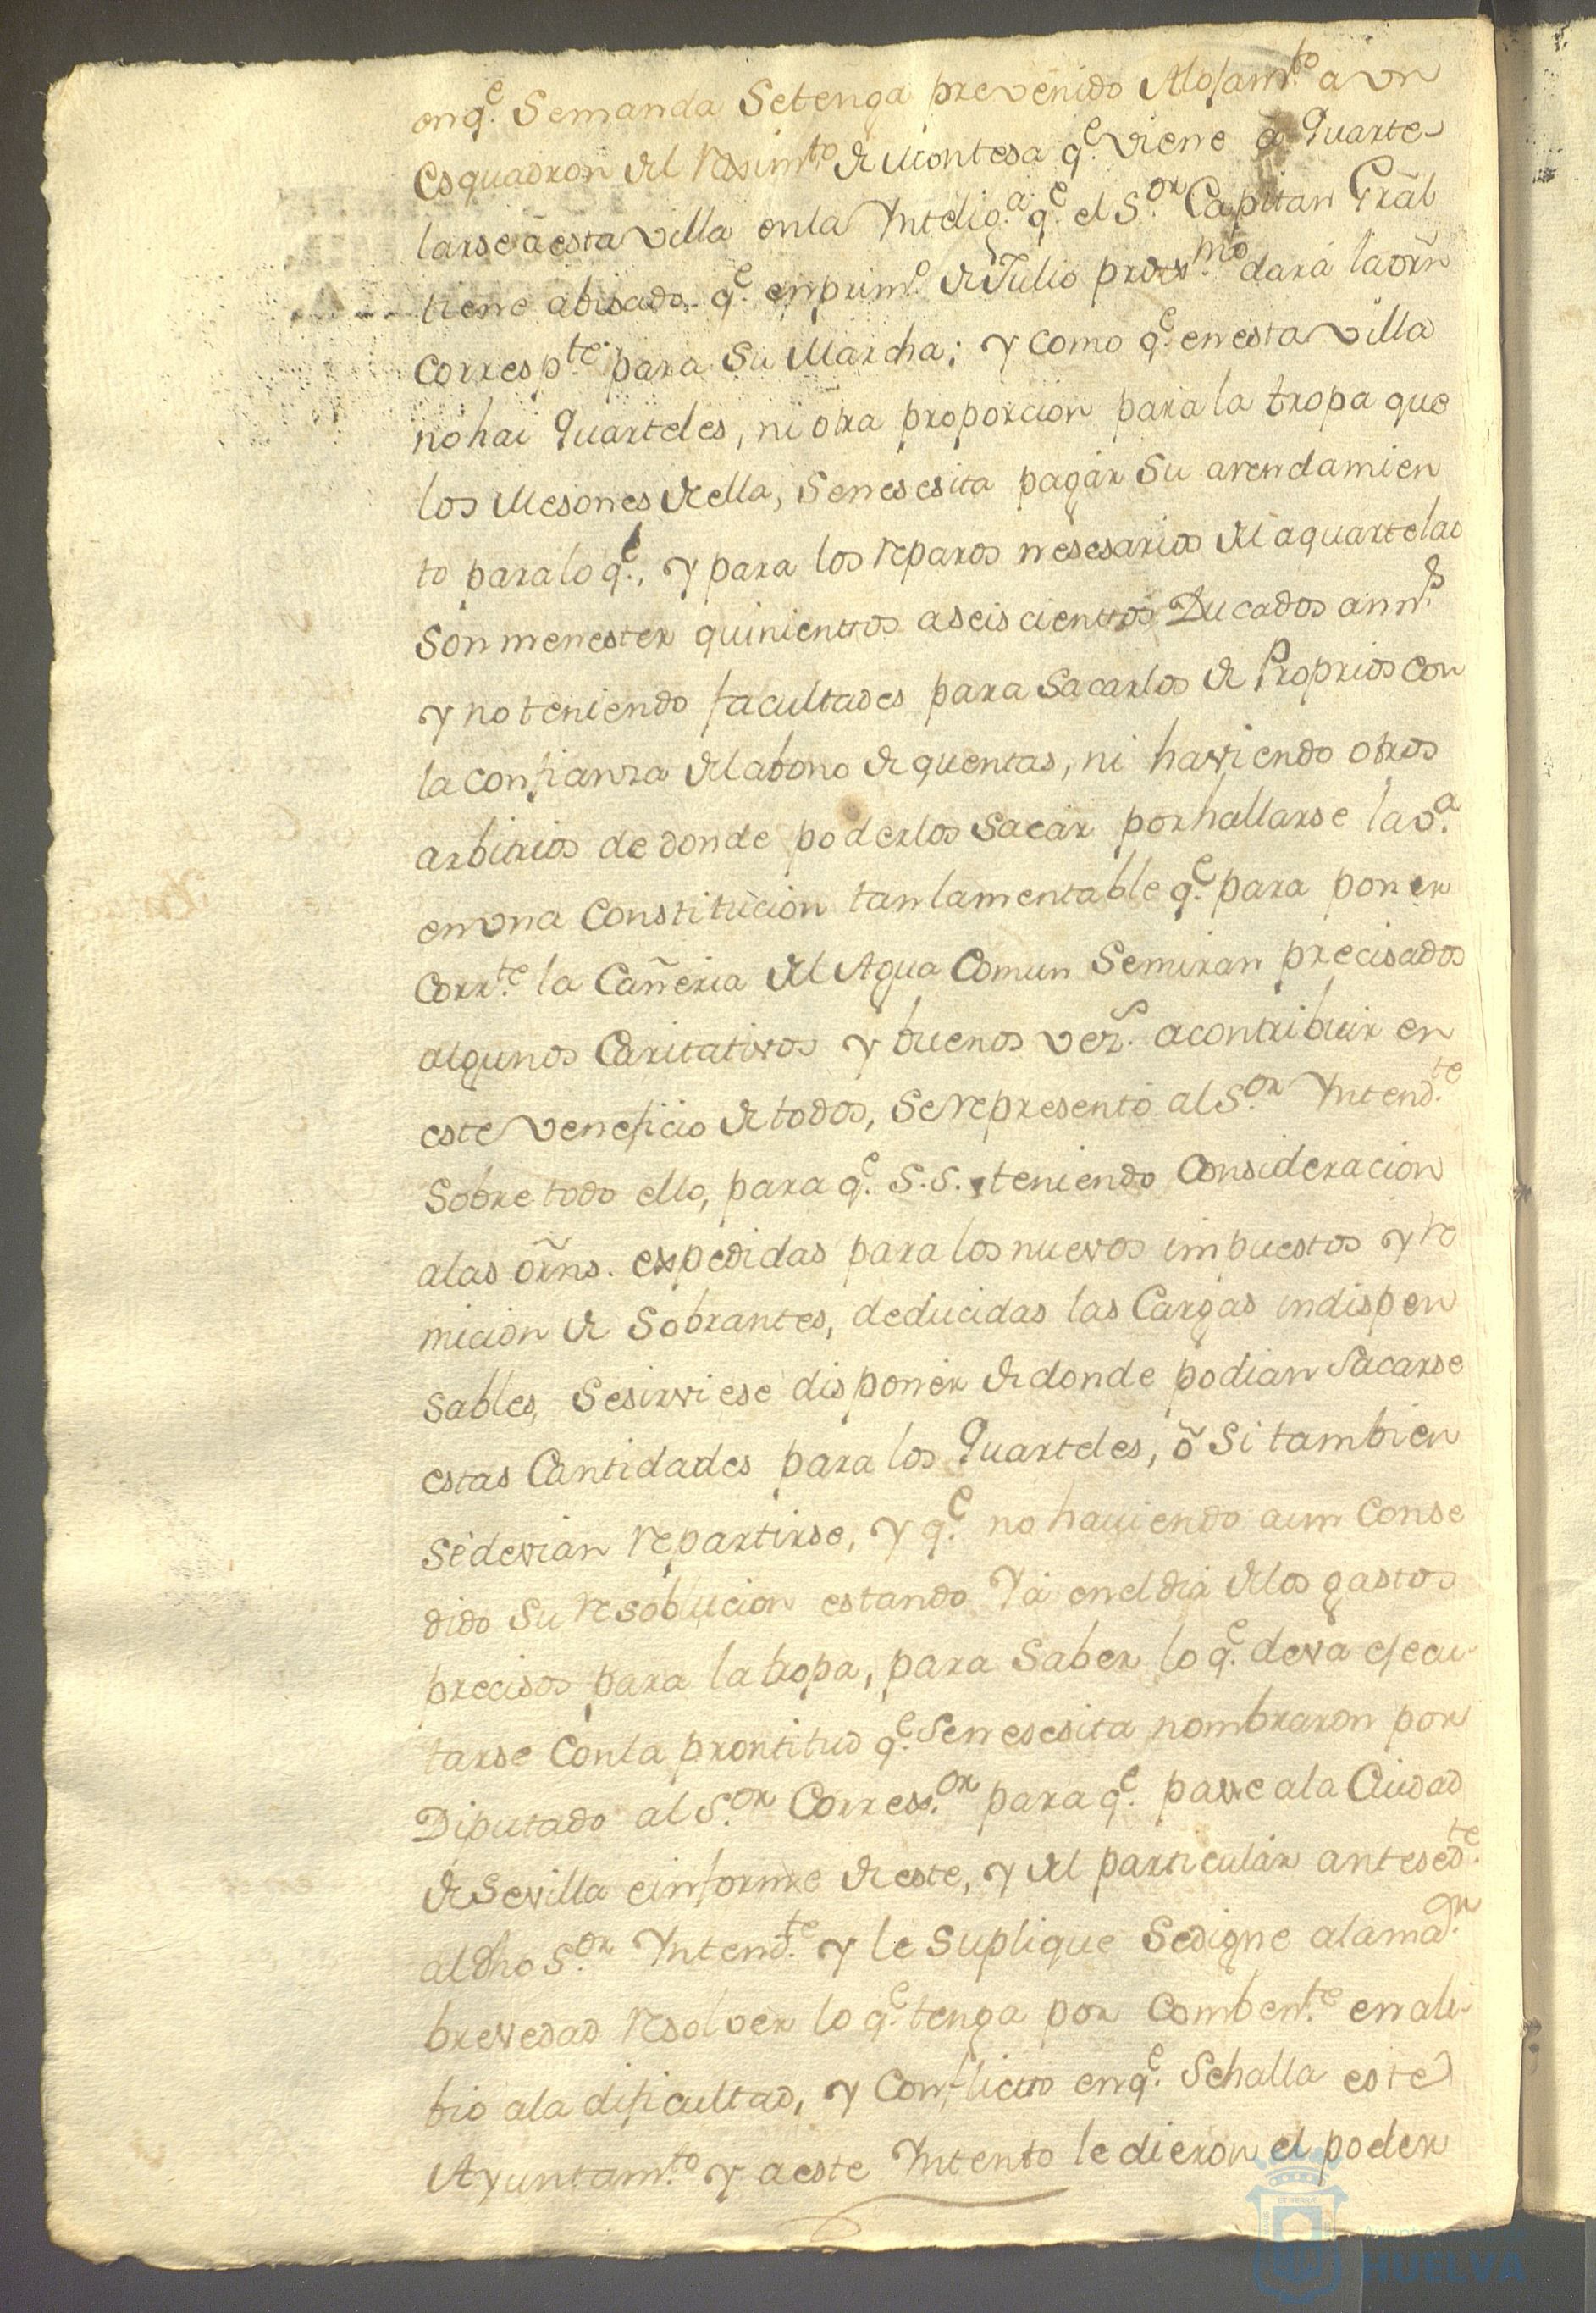 en q.e Semanda Setenga prevenido Alojam.to a un
esquadron del reximto de Montesa q.e viene â Quarte-
larse âesta villa enla Yntelig.a q.e el S.or Capitan Grãl
tiene abisado q.e enprim.o de Julio prox.mo dará laorñ
corresp.te para Su Marcha; y como q.e enesta villa
nohai Quarteles, ni ôtra proporcion para la tropa que
los Mesones de ella, Senesesita pagár Su arendamien
to paralo q.e, y para los reparos nesesarios del aquartelao
Son menester quinientos aseiscientos Ducados ann.s
y no teniendo facultades para Sacarlos de Proprios con
la confianza del abono de quentas, ni haviendo otros
arbitrios de donde poderlos Sacár por hallarse la v.a
en una Constitùcion tan lamentable q.e para poner
Corr.te la Cañeria del Agua Comun Semiran precisados
algunos Caritativos y buenos vez.s acontribuir en
este veneficio de todos, Se representó al S.or Yntend.te
Sobre todo ello, para q.e S.S. teniendo Consideracion
alas orñs. expedidas para los nuevos impuestos y re
micion de Sobrantes, deducidas las Cargas indispen
sables, Sesirviese disponer de donde podian Sacarse
estas Cantidades para los Quarteles, õ Si tambien
Sedevian repartirse, y q.e no haviendo aun Conse
dido Su resoblucion estando Yá eneldia delos gastos
precisos para la tropa, para Saber lo q.e deva ejecu-
tarse Conla prontitud q.e Senesesita nombraron por
Diputado al S.or Correx.or para q.e pase ala Ciudad
de Sevilla einforme de este, y del particulár antesed.te
aldho S.or Yntend.te y le Suplique Sedigne alama.or
brevedad resolver lo q.e tenga por comben.te en ali-
bio ala dificultad, y Conflicto enq.e Sehalla este
Ayuntam.to y a este Yntento le dieron el poder
HUELVA